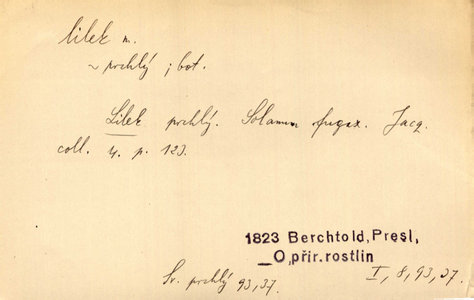 lilek m.
~ prchlý ; bot.
Lilek prchlý. Solanum fugax. Jacq.
coll. 4. p. 123.
1823 Berchtold, Presl,
O přir. rostlin
Sv. prchlý 93,37.
I, 8, 93, 37.